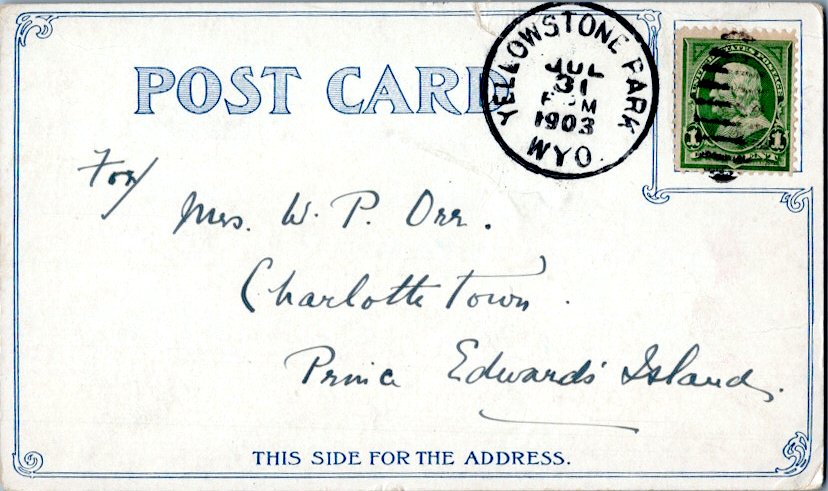 POST CARD
YELLOWSTONE PARK
JUL
31
PM
1903
WYO
UNITED STATES POSTAGE
1 1
For/
Mrs. W. P. Orr.
Charlotte Town.
Prince Edwards' Island.
THIS SIDE FOR THE ADDRESS.